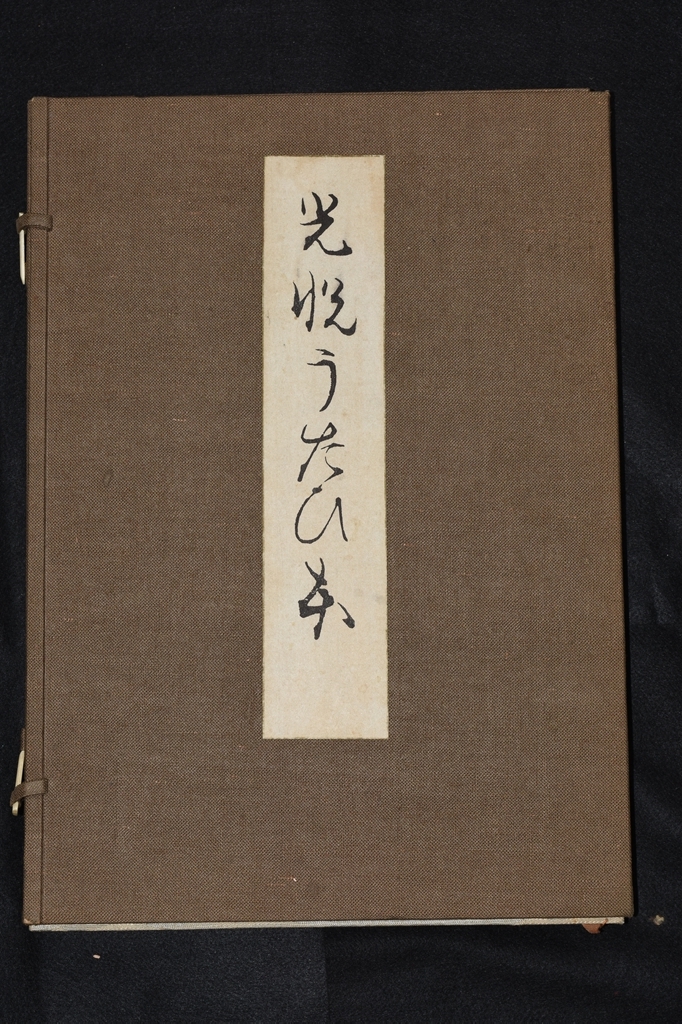 光悦うたひ本